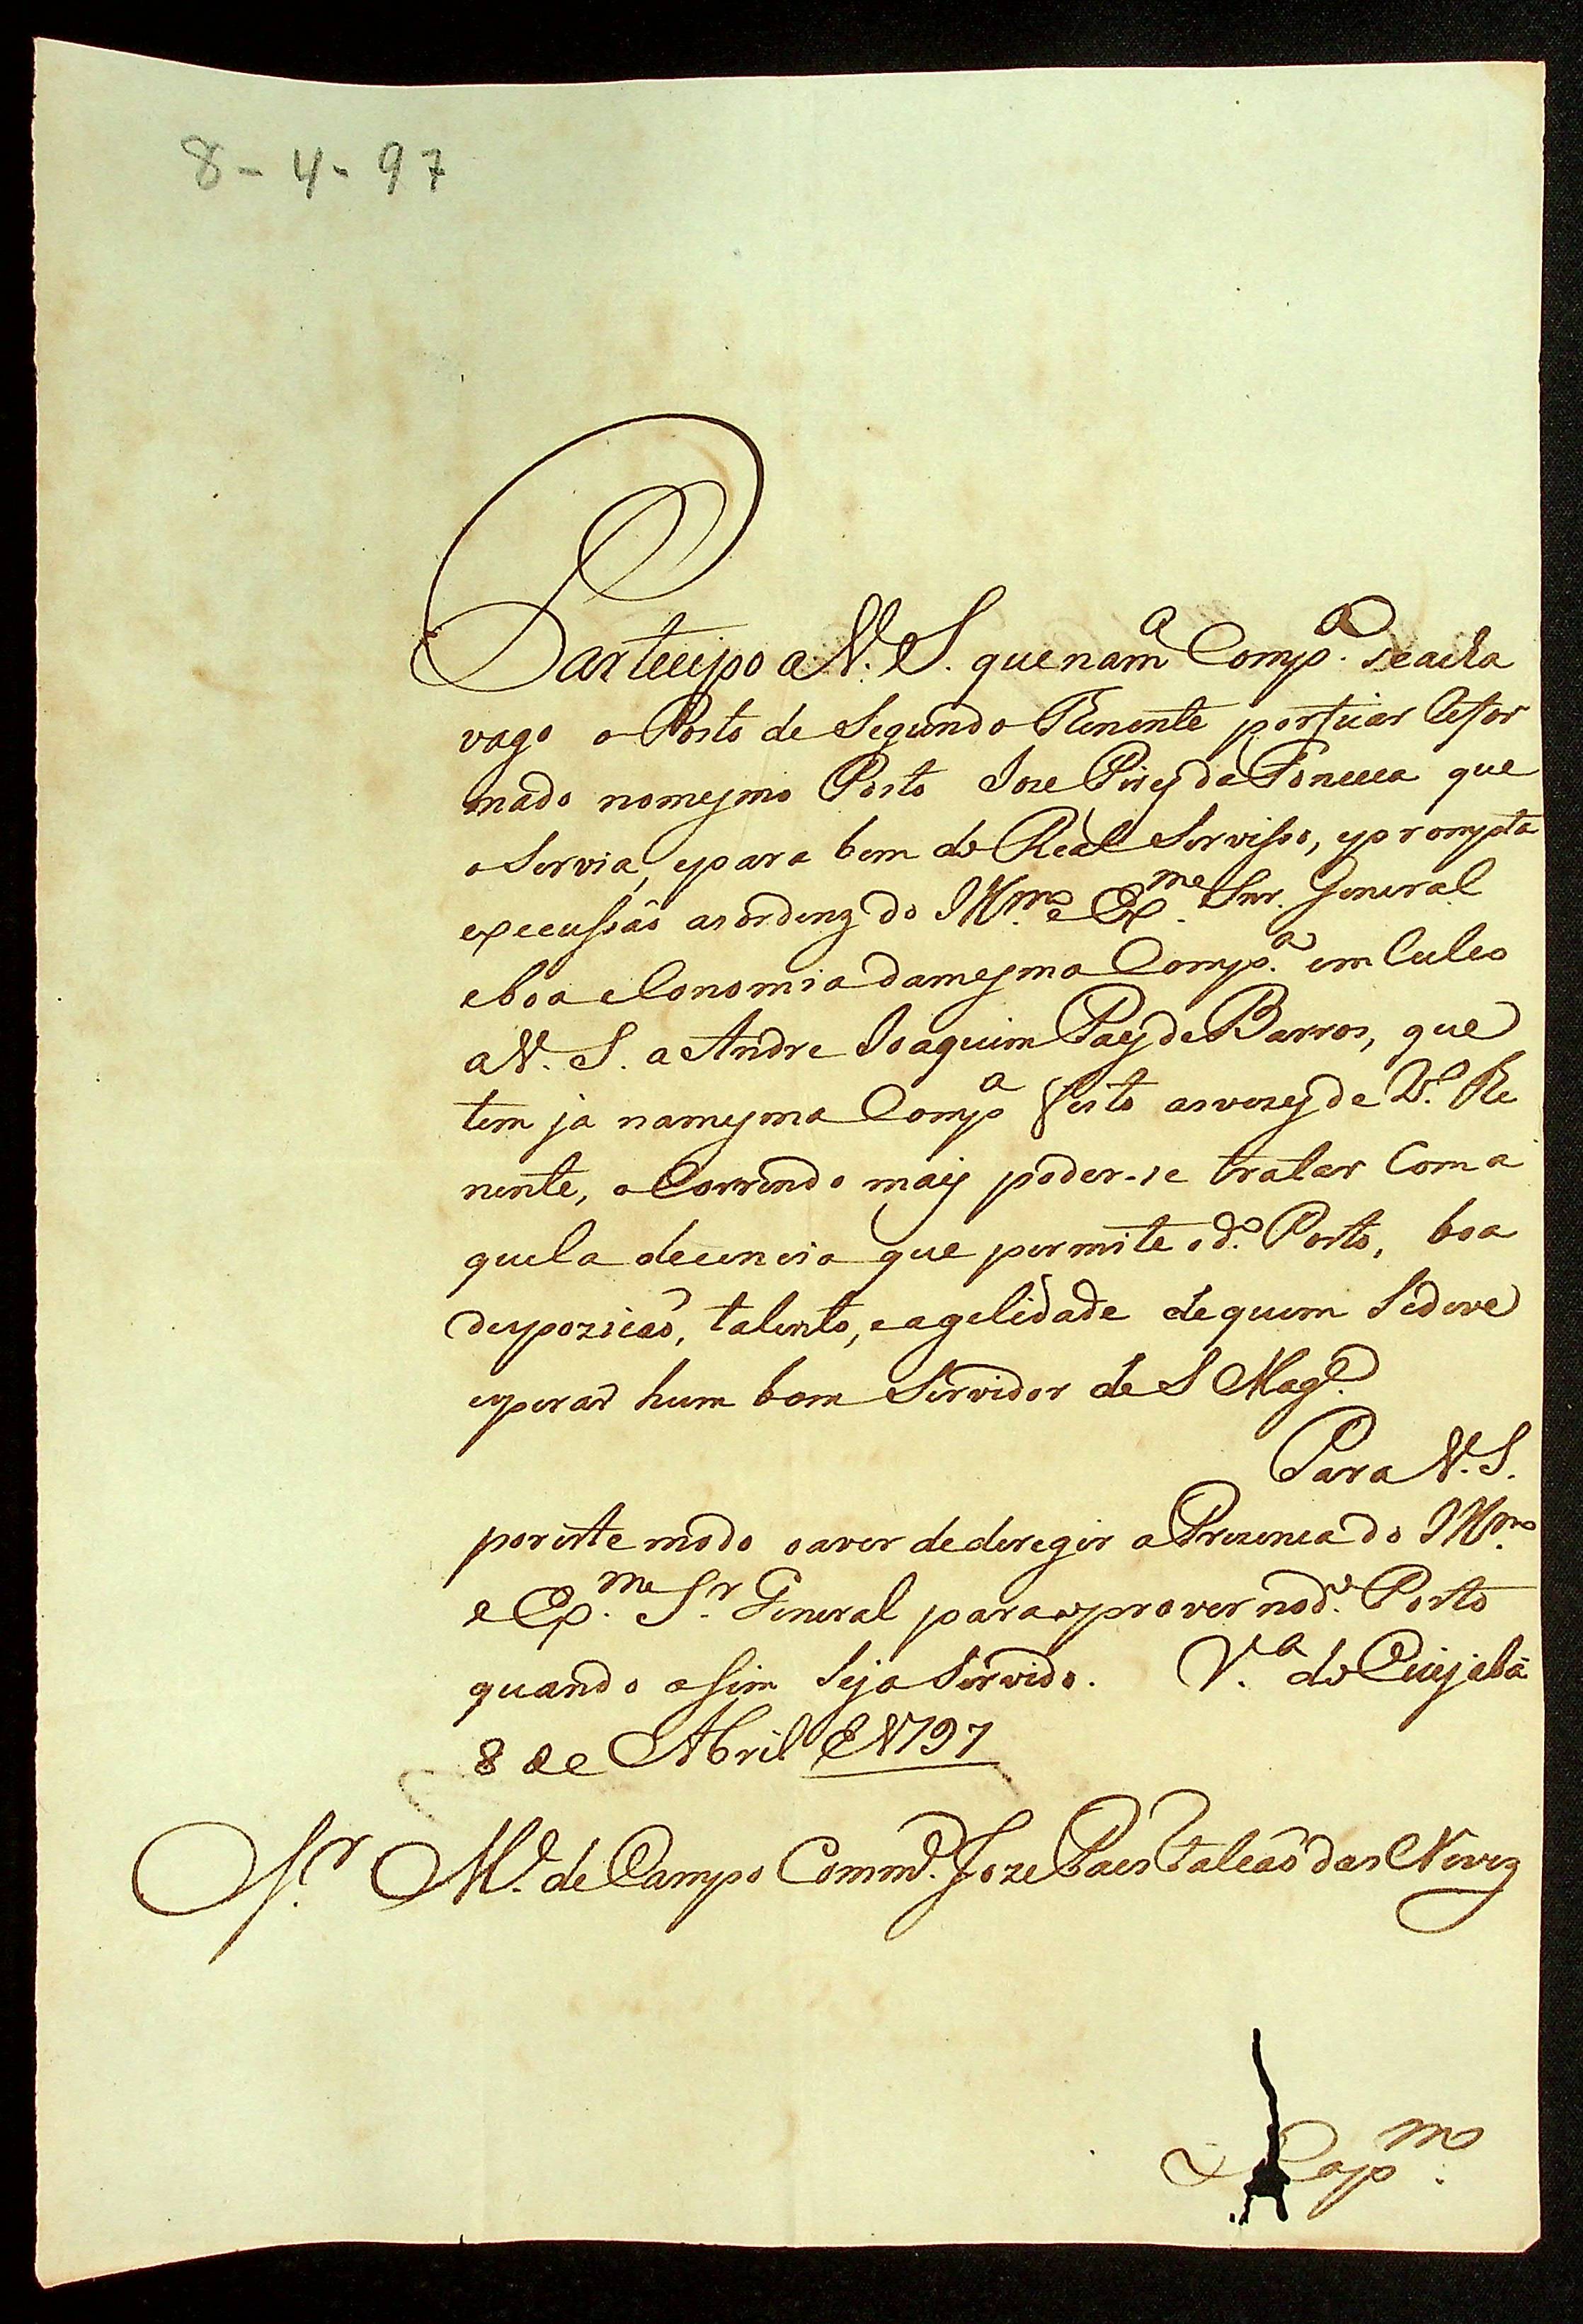 8-4-97
Partecipo a V. S. que na mª Compª. se acha
vago o Posto de Segundo Tenente por ficar Refor
mado no mesmo Posto Joze Pires da Fonceca que
o Servia, e para bem do Real Servisso, e prompta
execussaõ as ordenz do Illmº. e Exmº. Snr. General
e boa eConomia da mesma Compª. em Culco
a V. S. a Andre Joaquim Paes de Barros, que
tem ja na mesma Compª feito as vezes de 2º. Te
nente, oCorrendo mais poder-se tratar Com a
quela decencia que permite o dº. Posto, boa
despozicaõ, talento, e agelidade de quem Se deve
esperar hum bom Servidor de S Magᵉ.
Para V. S.
por este modo o aver de deregir a Prezenca do Illmº
e Exmº. Sʳ. General para o prover no dº. Posto
quando assim Seja Servido. Vª. do Cuyabá
8 de Abril de 1797
Sʳ. Mᵉ. de Campo Commᵈᵉ. Joze Paes Falcaõ das Nevez
Capᵐ.